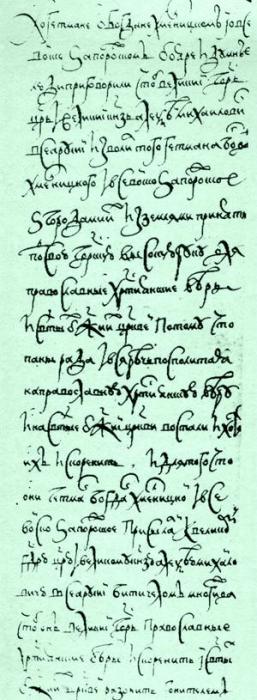 А о гетмане о Богдане Хмелницком и о все
Войске Запорожском бояре и думные
люди приговорили чтоб великий государь
царь и великий князь Алексей Михайлович
всеа Русии изволил того гетмана Богдана
Хмелницкого и все Войско Запорожское
з городами и з землями принять
под свою государскую высокую руку для
православные християнские веры
и святых божиих церквей потому что
паны рада и вся Речь Посполитая
на православную християнскую веру
и на святые божии церкви востали и хотят
их искоренить и для того что
они гетман Богдан Хмелницкой и все
Войско Запорожское присылали к великому
государю царю и великому князю Алексею Михайло
вичю всеа Русии бити челом многижда
чтоб он великий государь православные
християнские веры искоренить и святых
божиих церквей разорить гонителем